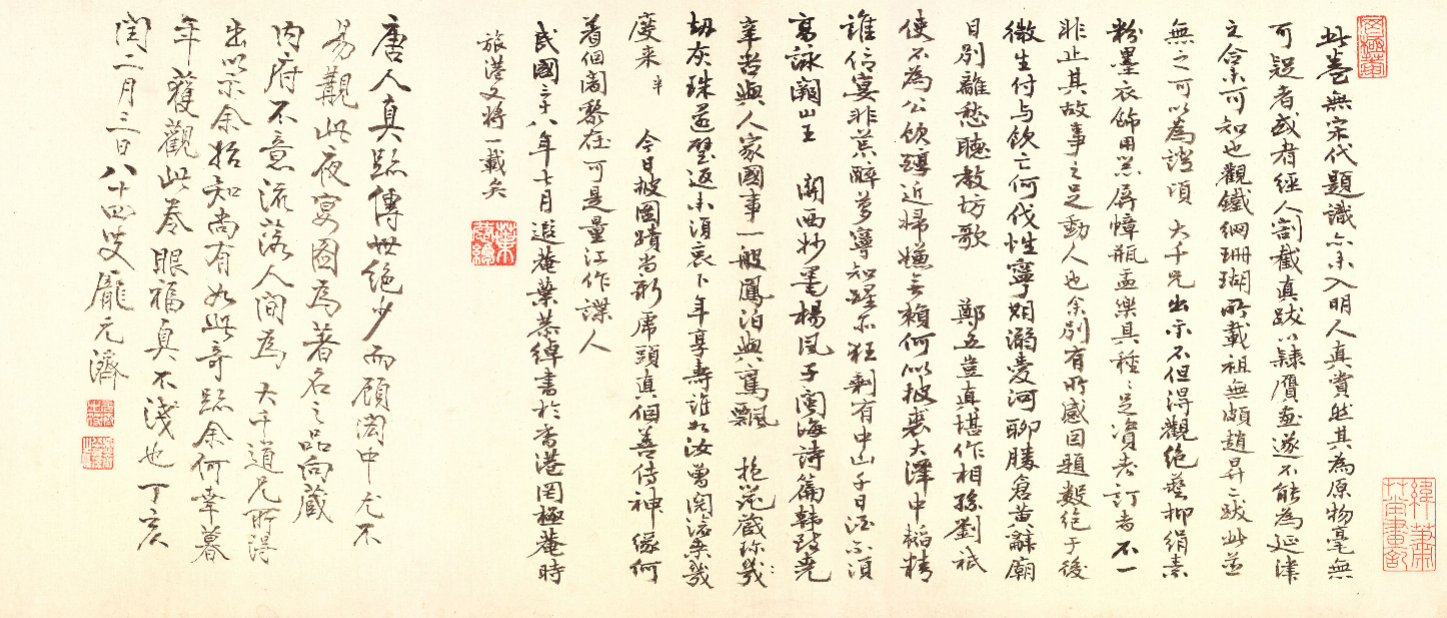 此卷無宋代題識亦未入明人真賞然其為原物毫無
可疑者或者經人割截真跋以隸贗畫遂不能為延津
之合未可知也觀鐵網珊瑚所載祖無頗趙昇二跋此並
無之可以為證頃 大千兄出示不但得觀絕藝抑絹素
粉墨衣飾用器屏幛瓶盂樂具種種足資考訂者不一
非止其故事之足動人也余別有所感因題數絕于後
微生付与飲亡何伐性寧期溺愛河聊勝倉黃辭廟
日別離愁聽教坊歌 鄭五豈真堪作相孫劉祇
使不為公飲醇近婦嫌無賴何似披裘大澤中韜精
誰信宴非荒醉夢寧知醒亦狂剩有中山千日酒不須
高詠闕山王 關西抄墨楊風子閩海詩篇韓致堯
辛苦與人家國事一般鳳泊與鸞飄 抱器藏珍幾
劫灰珠還璧返未須哀卜年享壽誰如汝曾閱滄桑幾
度来 半 今日披圖蹟尚新虎頭真個善傳神緣何
着個闍黎在可是量江作諜人
民國三十八年七月遐庵葉恭綽書於香港罔極庵時
旅港又將一載矣
葉恭綽
唐人真跡傳世絕少而顧閎中尤不
易覯此夜宴圖為著名之品向藏
內府不意流落人間為 大千道兄所得
出以示余始知尚有如此奇跡余何幸暮
年獲觀此卷眼福真不淺也丁亥
閏二月三日八十四叟龐元濟